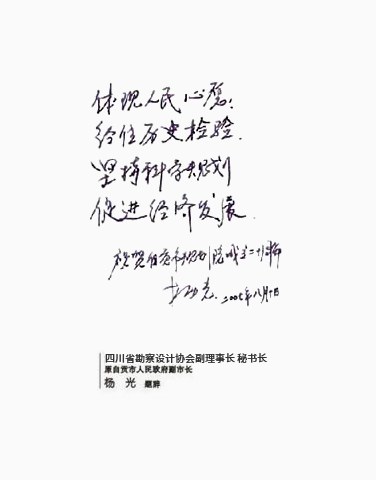 体现人民心愿;
经住历史检验.
坚持科学规划
促进经济发展.
祝贺自贡市规划院成立二十周年
杨光.
四川省勘察设计协会副理事长 秘书长
原自贡市人民政府副市长
杨 光 题辞